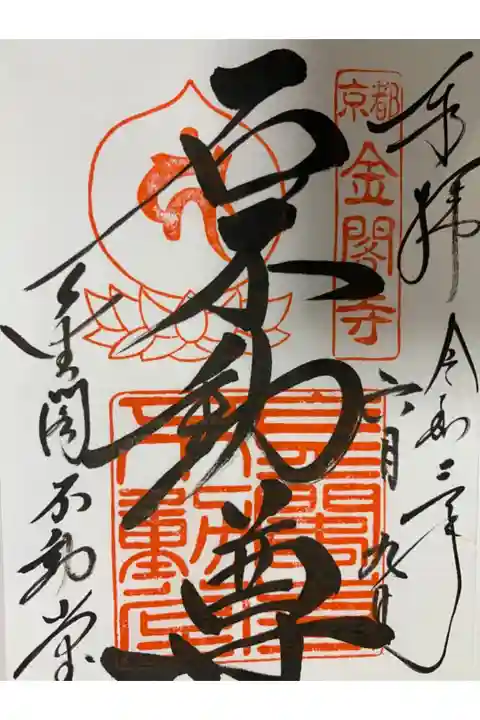 奉拝
令和二年
六月九日
京都
金閣寺
石不動尊
金閣不動堂